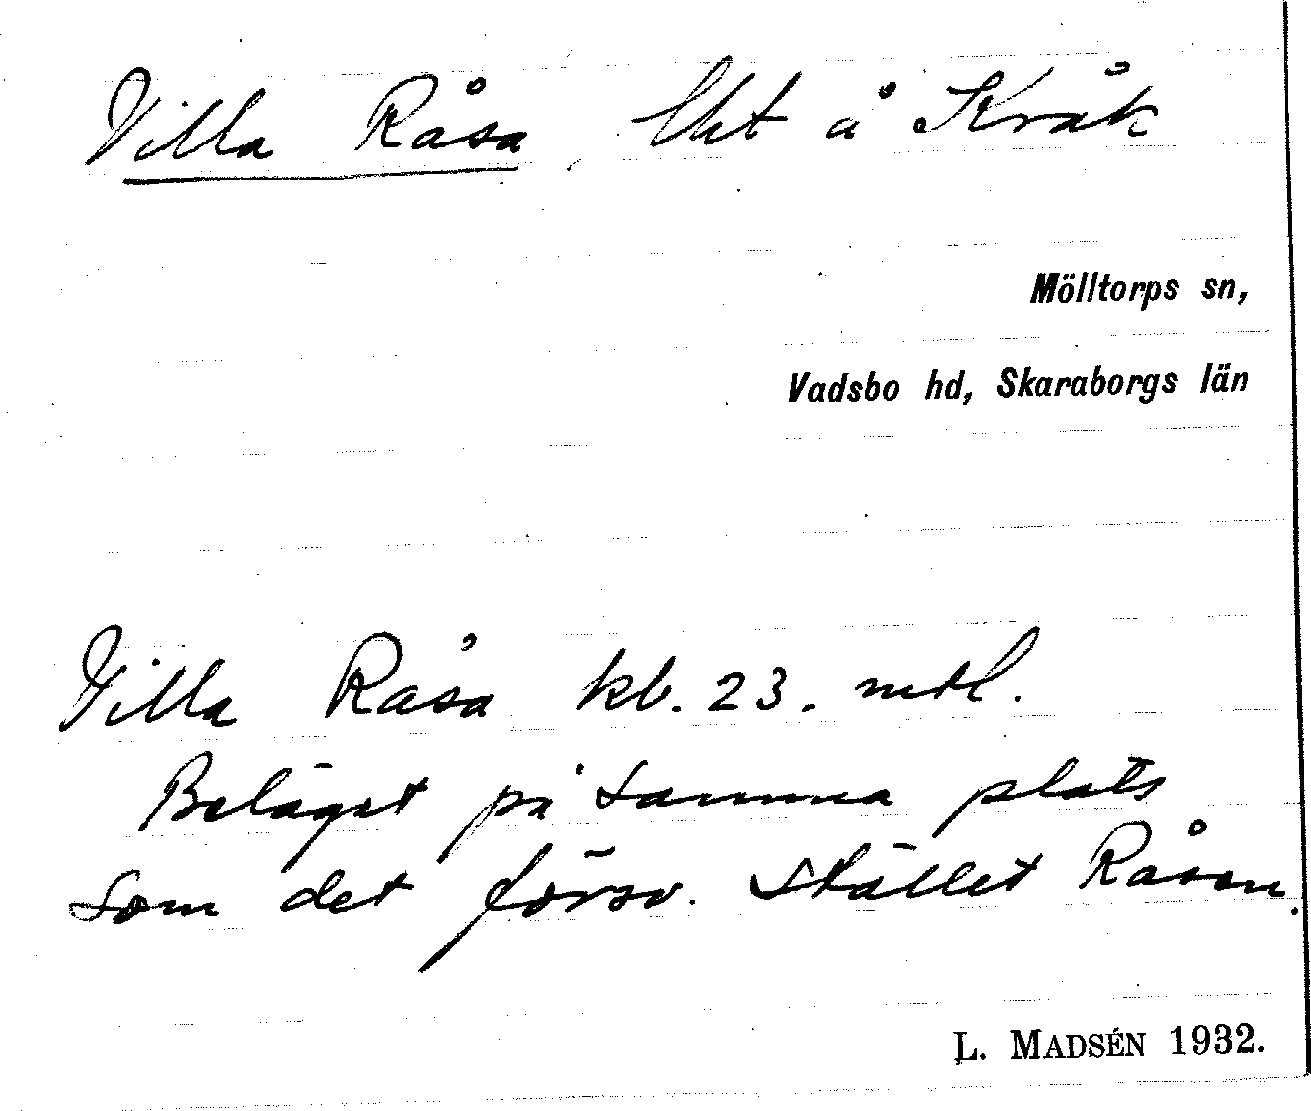 Villa Råsa, lht å Kråk
Mölltorps sn,
Vadsbo hd, Skaraborgs län
Villa Råsa kb. 23. mtl.
Beläget på samma plats
som det försv. stället Råsen.
L. MADSÉN 1932.